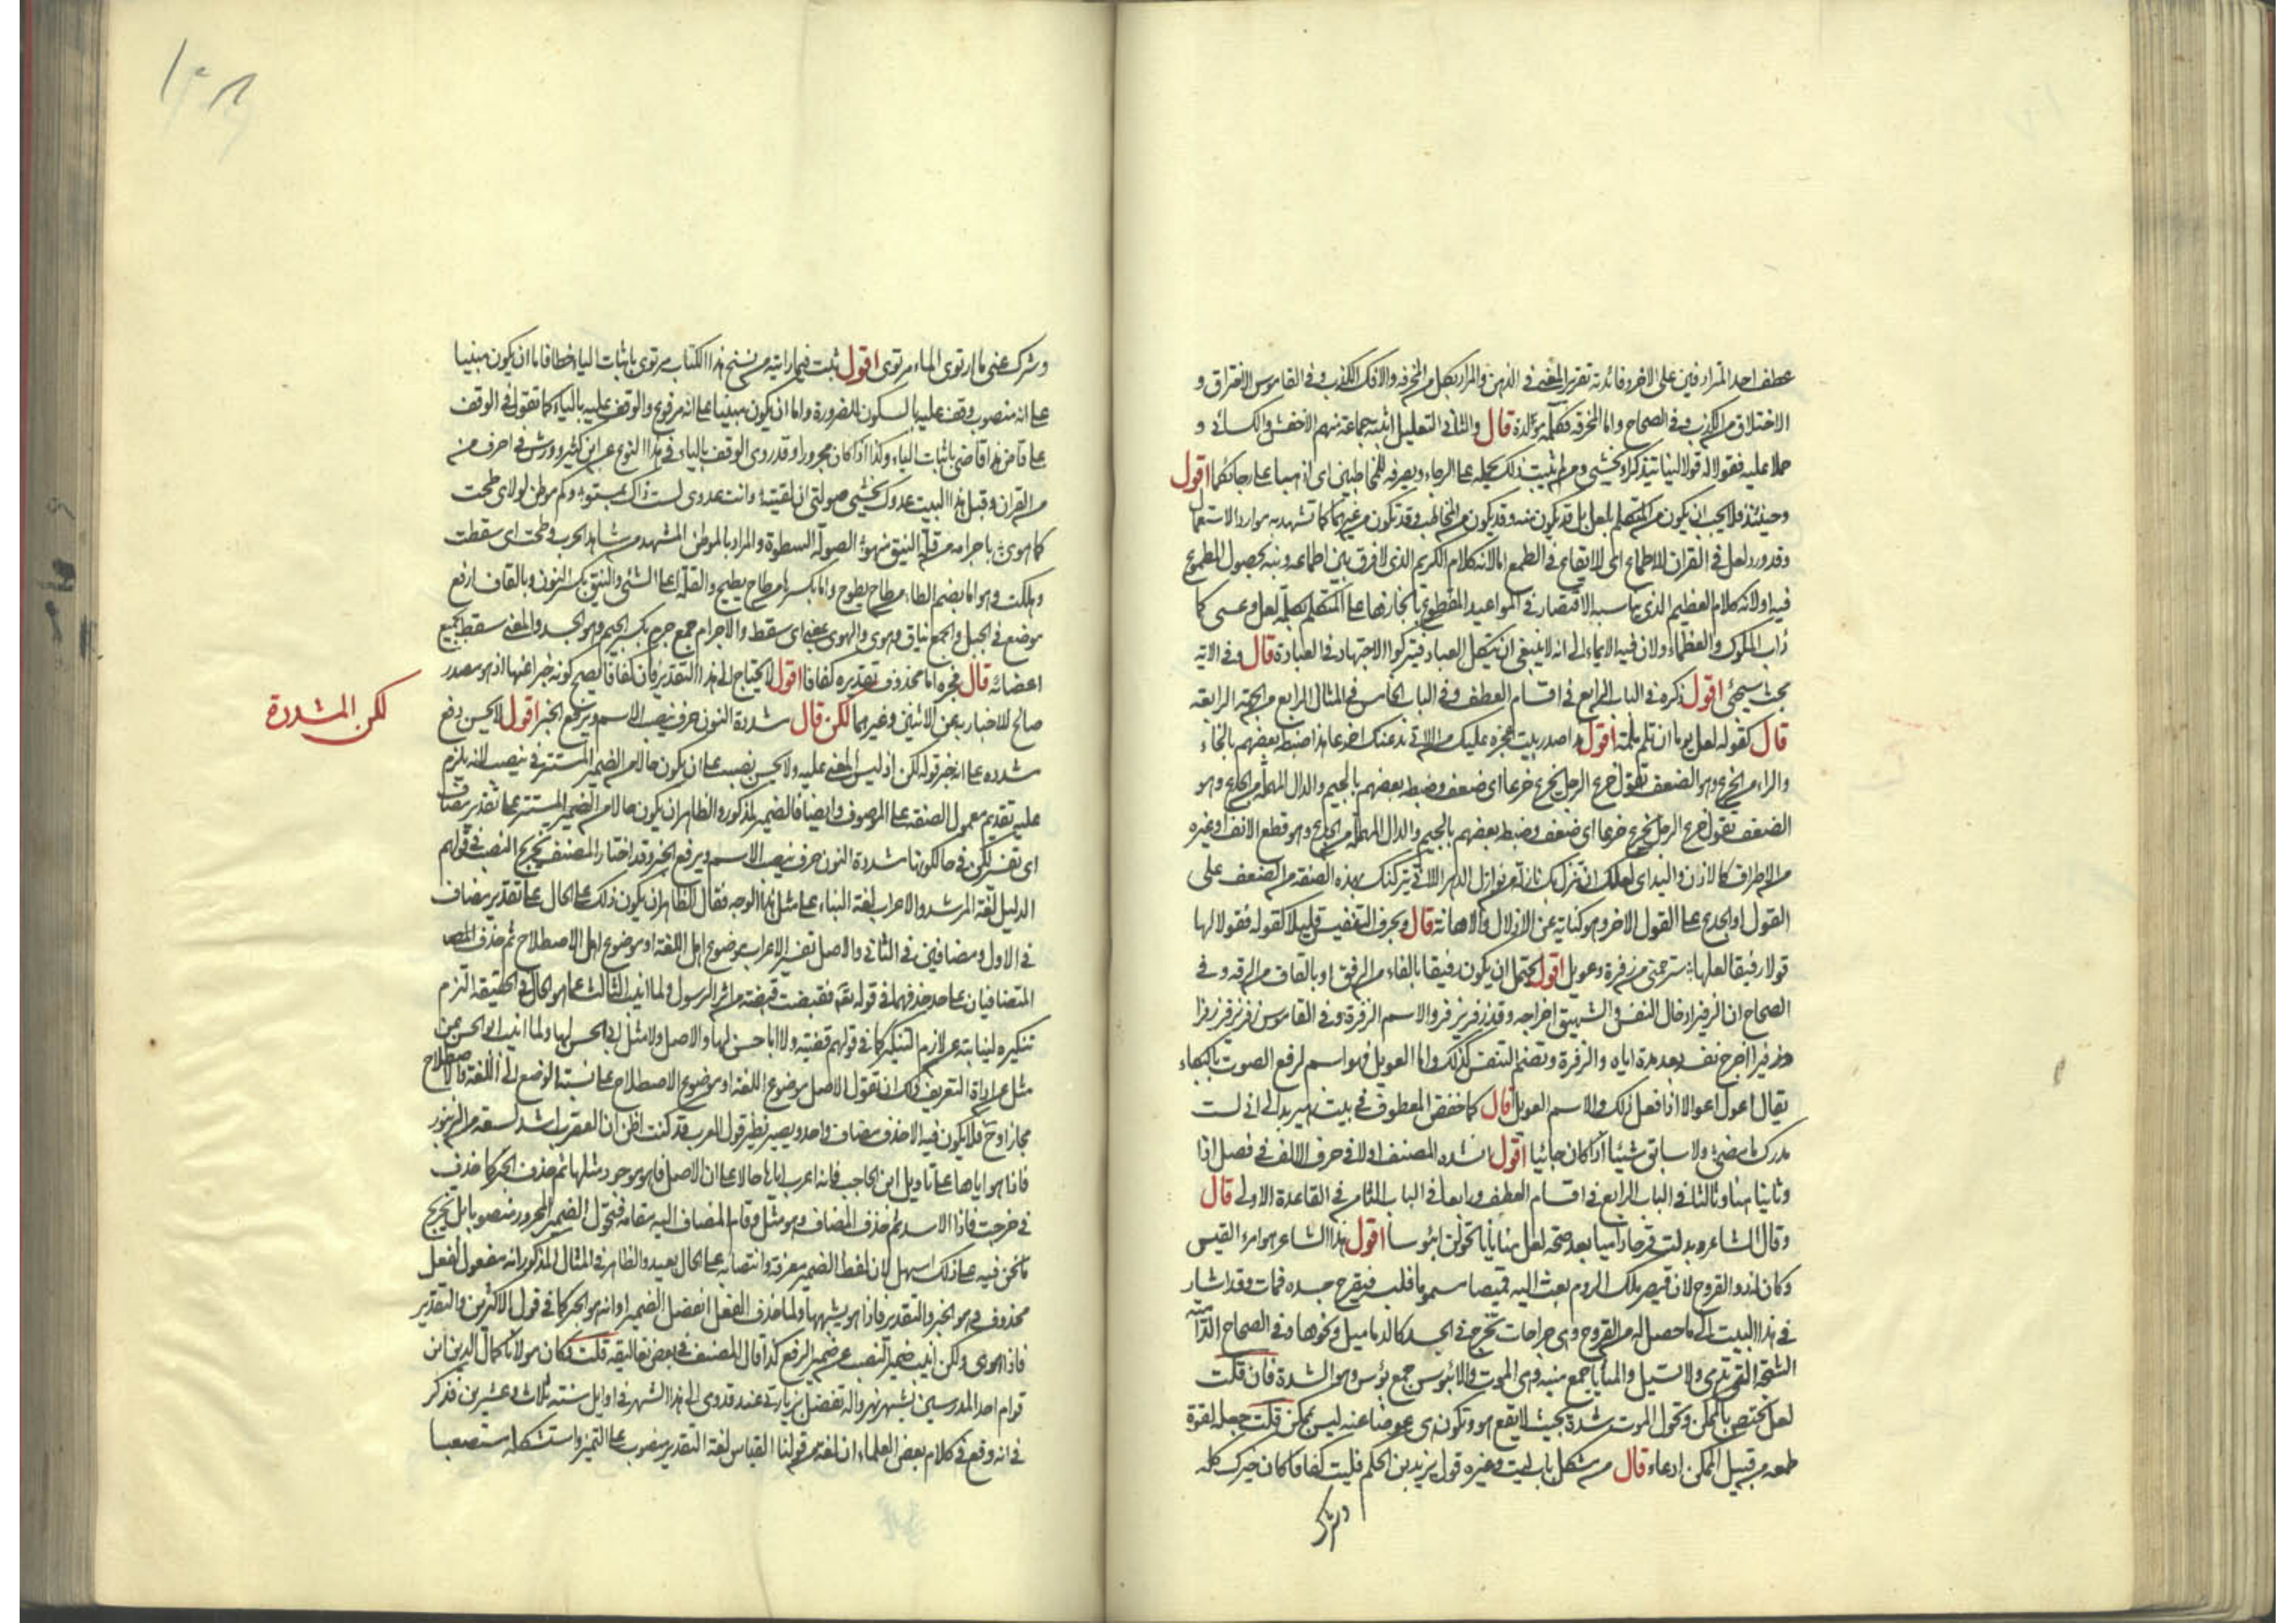 عطف احد المترادفين على الاخر وفائدته تقرير المعنى في الذهن والمراد بكل من الخرفه والافك الكذب وفي القاموس الاختراق و
الاختلاق من الكذب وفي الصحاح واما المخرقه فكلمة مولدة قال والثاني التعليل اثبته جماعة منهم الاخفش والكسائي و
حملا عليه فقولا له قولا لينا لعله يتذكر او يخشى ومن لم يثبت ذلك يحمله على الرجاء ويصرفه للمخاطبين اى اذهبا على رجائكما اقول
وحينئذ فلا يجب ان يكون من المتكلم بلعل بل قد يكون منه وقد يكون من المخاطب وقد تكون من غيرهما كما تشهد به موارد الاستعمال
وقد ورد لعل في القران للاطماع اى لايقاع في الطمع اما لانه كلام الكريم الذى لا فرق بين اطماعه وبته بحصول المطموع
فيه او لانه كلام العظيم الذى يناسبه الاقتصار في المواعيد المقطوع بانجازها على المتكلم بكلمة لعل وعسى كما
داب الملوك والعظماء ولان فيه الايماء الى انه لا ينبغى ان يتكل العباد فيتركوا الاجتهاد في العبادة قال وفي الاية
بحث سيجئ اقول ذكره في الباب الرابع في اقسام العطف وفي الباب الخامس في المثال الرابع من الجهة الرابعة
قال كقوله لعلك يوما ان تلم ملمة اقول هذا صدر بيت عجزه عليك من اللاتى يدعنك اخرعا هذا ضبطه بعضهم بالخاء
والراء من الخرع وهو الضعف تقول خرع الرجل يخرع خرعا اى ضعف وضبطه بعضهم بالجيم والدال المهملة من الجدع وهو
الضعف تقول خرع الرجل يخرع خرعا اى ضعف وضبطه بعضهم بالجيم والدال المهملة من الجدع وهو قطع الانف وغيره
من الاطراف كالاذن واليد اى لعلك ان تنزل بك نازلة من نوازل الدهر اللاتى يتركنك بهذه الصفة من الضعف على
القول او الجدع على القول الاخر وهو كناية عن الاذلال والاهانة قال وبحرف التنفيس قليلا كقوله فقولا لها
قولا رفيقا لعلها سترحمنى من زفرة وعويل اقول يحتمل ان يكون رفيقا بالفاء من الرفق او بالقاف من الرقة وفي
الصحاح ان الزفير ادخال النفس والشهيق اخراجه وقد زفر يزفر والاسم الزفرة وفي القاموس زفر يزفر زفرا
وزفيرا اخرج نفسه بعد مدة اياه والزفرة وتضم التنفس كذلك واما العويل فهو اسم لرفع الصوت بالبكاء
يقال اعول اعوالا اذا فعل ذلك والاسم العويل قال كما خفض المعطوف في بيت زهير بدا لى انى لست
مدرك ما مضى ولا سابق شيئا اذا كان جائيا اقول انشده المصنف اولا في حرف الالف في فصل اذا
وثانيا هنا وثالثا في الباب الرابع في اقسام العطف ورابعا في الباب الثامن في القاعدة الاولى قال
وقال الشاعر وبدلت قرحا داميا بعد صحة لعل منايانا تحولن ابؤسا اقول هذا الشاعر هو امرء القيس
وكان له ذو القروح لان قيصر ملك الروم بعث اليه قميصا مسموما فلبسه فيقرح جسده فمات وقد اشار
في هذا البيت الى ما حصل له من القروح وهى جراحات تخرج في الجسد كالدماميل ونحوها وفي الصحاح الدامية
الشجة التى تدمى ولا تسيل والمنايا جمع منية وهى الموت والابؤس جمع بؤس وهو الشدة فان قلت
لعل يختص بالممكن وتحول الموت شدة بحيث لا يقع هو وتكون هى عوضا عنه ليس بممكن قلت جعله لقوة
طمعه من قبيل الممكن ادعاء قال من مشكل باب ليت وغيره قول يزيد بن الحكم فليت كفافا كان خيرك كله
وشرك
١٠٨
وشرك عنى ما ارتوى الماء مرتوى اقول ثبت فيما رايته من نسخ هذا الكتاب مرتوى باثبات الياء خطا فاما ان يكون مبنيا
على انه منصوب وقف عليه بالسكون للضرورة واما ان يكون مبنيا على انه مرفوع والوقف عليه بالياء كما تقول في الوقف
على قاض هذا قاضى باثبات الياء وكذا اذا كان مجرورا وقد روى الوقف بالياء في هذا النوع عن ابن كثير وورش في احرف من
من القران وقبل هذا البيت عدوك يخشى صولتى ان لقيته وانت عدوى لست ذاك بمستو وكم موطن لولاى طحت
كما هوى باجرامه من قلة النيق منهوى الصولة السطوة والمراد بالموطن المشهد من مشاهد الحرب وطحت اى سقطت
وهلكت وهو اما بضم الطاء من طاح يطوح واما بكسرها من طاح يطيح والقلة اعلى الشئ والنيق بكسر النون وبالقاف ارفع
موضع في الجبل والجمع نياق وهوى والهوى بمعنى اى سقط والاجرام جمع جرم بكسر الجيم وهو الجسد والمعنى سقط بجميع
اعضائه قال فخبره اما محذوف تقديره كفافا اقول لا يحتاج الى هذا التقدير فان كفافا يصح كونه خبرا عنها اذ هو مصدر
صالح للاخبار به عن الاثنين وغيرهما لكن قال مشددة النون حرف ينصب الاسم ويرفع الخبر اقول لا يحسن رفع
لكن المشددة
مشددة على انه خبر قوله لكن اذ ليس المعنى عليه ولا يحسن نصبه على ان يكون حالا من الضمير المستتر في ينصب لانه يلزم
عليه تقديم معمول الصفة على الموصوف وايضا فالضمير مذكور والظاهر ان يكون حالا من الضمير المستتر على تقدير مضاف
اى تفسير لكن في حال كونها مشددة النون حرف ينصب الاسم ويرفع الخبر وقد اختار المصنف تخريج النصب في قولهم
الدليل لغة المرشد والاعراب لغة البناء على مثل هذا الوجه فقال الظاهر ان يكون ذلك على الحال على تقدير مضاف
في الاول ومضافين في الثانى والاصل تفسير الاعراب موضوع اهل اللغة او موضوع اهل الاصطلاح ثم حذف المضـ
المتضايفان على حد حذفهما في قوله تعه فقبضت قبضة من اثر الرسول ولما انيب الثالث عما هو الحال في الحقيقة التزم
تنكيره لنيابته عن لازم التنكير كما في قولهم قضية ولا ابا حسن لها والاصل ولا مثل ابى الحسن لها ولما انيب ابو الحسن عن
مثل جرد اداة التعريف ولك ان تقول الاصل موضوع اللغة او موضوع الاصطلاح على نسبة الوضع الى اللغة والاصطلاح
مجازا وح فلا يكون فيه الا حذف مضاف واحد ويصير نظير قول العرب قد كنت اظن ان العقرب اشد لسعة من الزنبور
فاذا هو اياها على تاويل ابن الحاجب فانه اعرب اياها حالا على ان الاصل فاذا هو موجود مثلها ثم حذف الخبر كما حذف
في خرجت فاذا الاسد ثم حذف المضاف وهو مثل وقام المضاف اليه مقامه فتحول الضمير المجرور منصوبا بل تخريج
ما نحن فيه على ذلك اسهل لان لفظ الضمير معرفة وانتصابه على الحال بعيد والظاهر في المثال المذكور انه مفعول لفعل
محذوف هو الخبر والتقدير فاذا هو يشبهها ولما حذف الفعل انفصل الضمير او انه هو الخبر كما في قول الاكثرين والتقدير
فاذا هو هى ولكن انيب ضمير النصب عن ضمير الرفع كذا قال المصنف في بعض تعاليقه قلت كان مولانا كمال الدين ابن
قوام احد المدرسين بشهر نهرواله تفضل بزيارتى عند قدومى الى هذا الشهر في اوايل سنة ثلاث وعشرين فذكر
في انه وقع في كلام بعض العلماء ان لغة من قولنا القياس لغة التقدير منصوب على التميز واستشكله مستصعبا